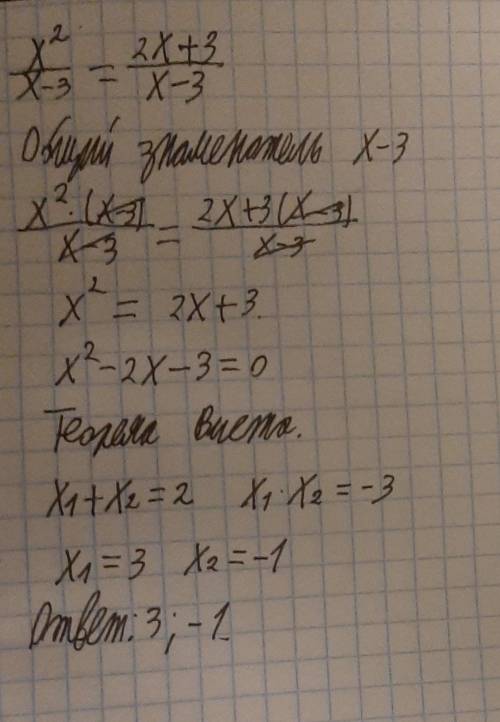 x²/x-3 = 2x+3/x-3
Общий знаменатель x-3
x²·(x-3)/x-3 = 2x+3(x-3)/x-3
x² = 2x+3.
x²-2x-3=0
Теорема Виета.
x₁+x₂=2 x₁·x₂=-3
x₁=3 x₂=-1
Ответ: 3; -1